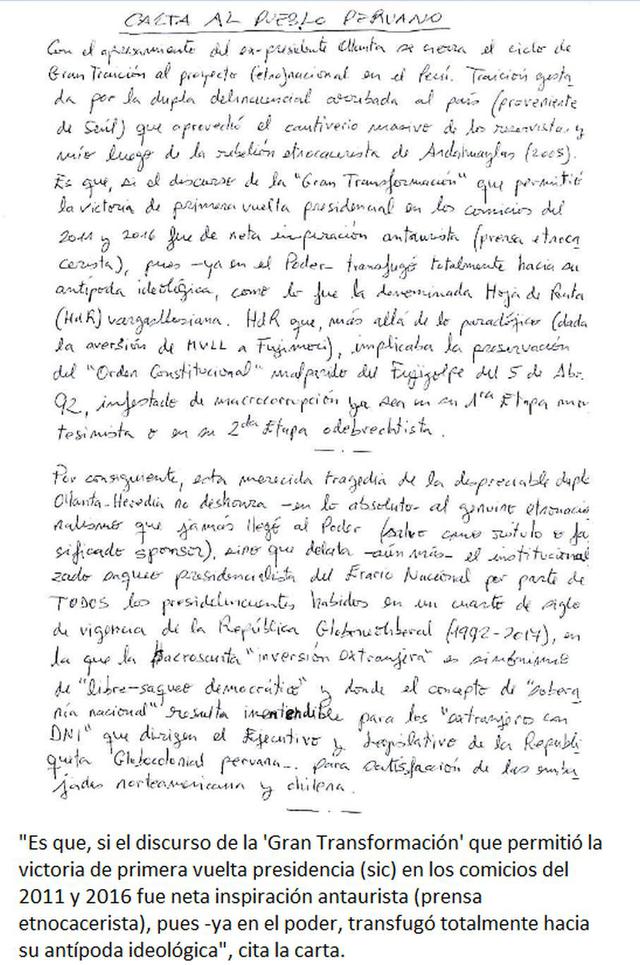 CARTA AL PUEBLO PERUANO
Con el apresamiento del ex-presidente Ollanta se cierra el ciclo de
Gran Traición al proyecto (etno)nacional en el Perú. Traición gesta
da por la dupla delincuencial arribada al país (proveniente
de Seúl) que aprovechó el cautiverio masivo de los reservistas y
mío luego de la rebelión etnocacerista de Andahuaylas (2005).
Es que, si el discurso de la "Gran Transformación" que permitió
la victoria de primera vuelta presidencial en los comicios del
2011 y 2016 fue de neta inspiración antaurista (prensa etnoca
cerista), pues -ya en el Poder- transfugó totalmente hacia su
antípoda ideológica, como lo fue la denominada Hoja de Ruta
(HdR) vargasllosiana. HdR que, más allá de lo paradójico (dada
la aversión de MVLL a Fujimori), implicaba la preservación
del "Orden Constitucional" malparido del Fujigolpe del 5 de Abr.
92, infestado de macrocorrupción ya sea en su 1ra Etapa mon
tesinista o en su 2da Etapa odebrechtista.
Por consiguiente, esta merecida tragedia de la despreciable dupla
Ollanta-Heredia no deshonra -en lo absoluto- al genuino etnonacio
nalismo que jamás llegó al Poder (salvo como rótulo o fal
sificado sponsor), sino que delata -aún más- el institucionali
zado saqueo presidencialista del Erario Nacional por parte de
TODOS los presidelincuentes habidos en un cuarto de siglo
de vigencia de la República Globoneoliberal (1992-2017), en
la que la sacrosanta "inversión extranjera" es sinónimo
de "libre-saqueo democrático" y donde el concepto de "sobera
nía nacional" resulta inentendible para los "extranjeros con
DNI" que dirigen el Ejecutivo y Legislativo de la Republi
queta Globocolonial peruana... para satisfacción de las emba
jadas norteamericana y chilena.
"Es que, si el discurso de la 'Gran Transformación' que permitió la
victoria de primera vuelta presidencia (sic) en los comicios del
2011 y 2016 fue neta inspiración antaurista (prensa
etnocacerista), pues -ya en el poder, transfugó totalmente hacia
su antípoda ideológica", cita la carta.